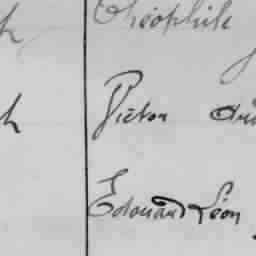 Théophile
Victor
Edouard Léon